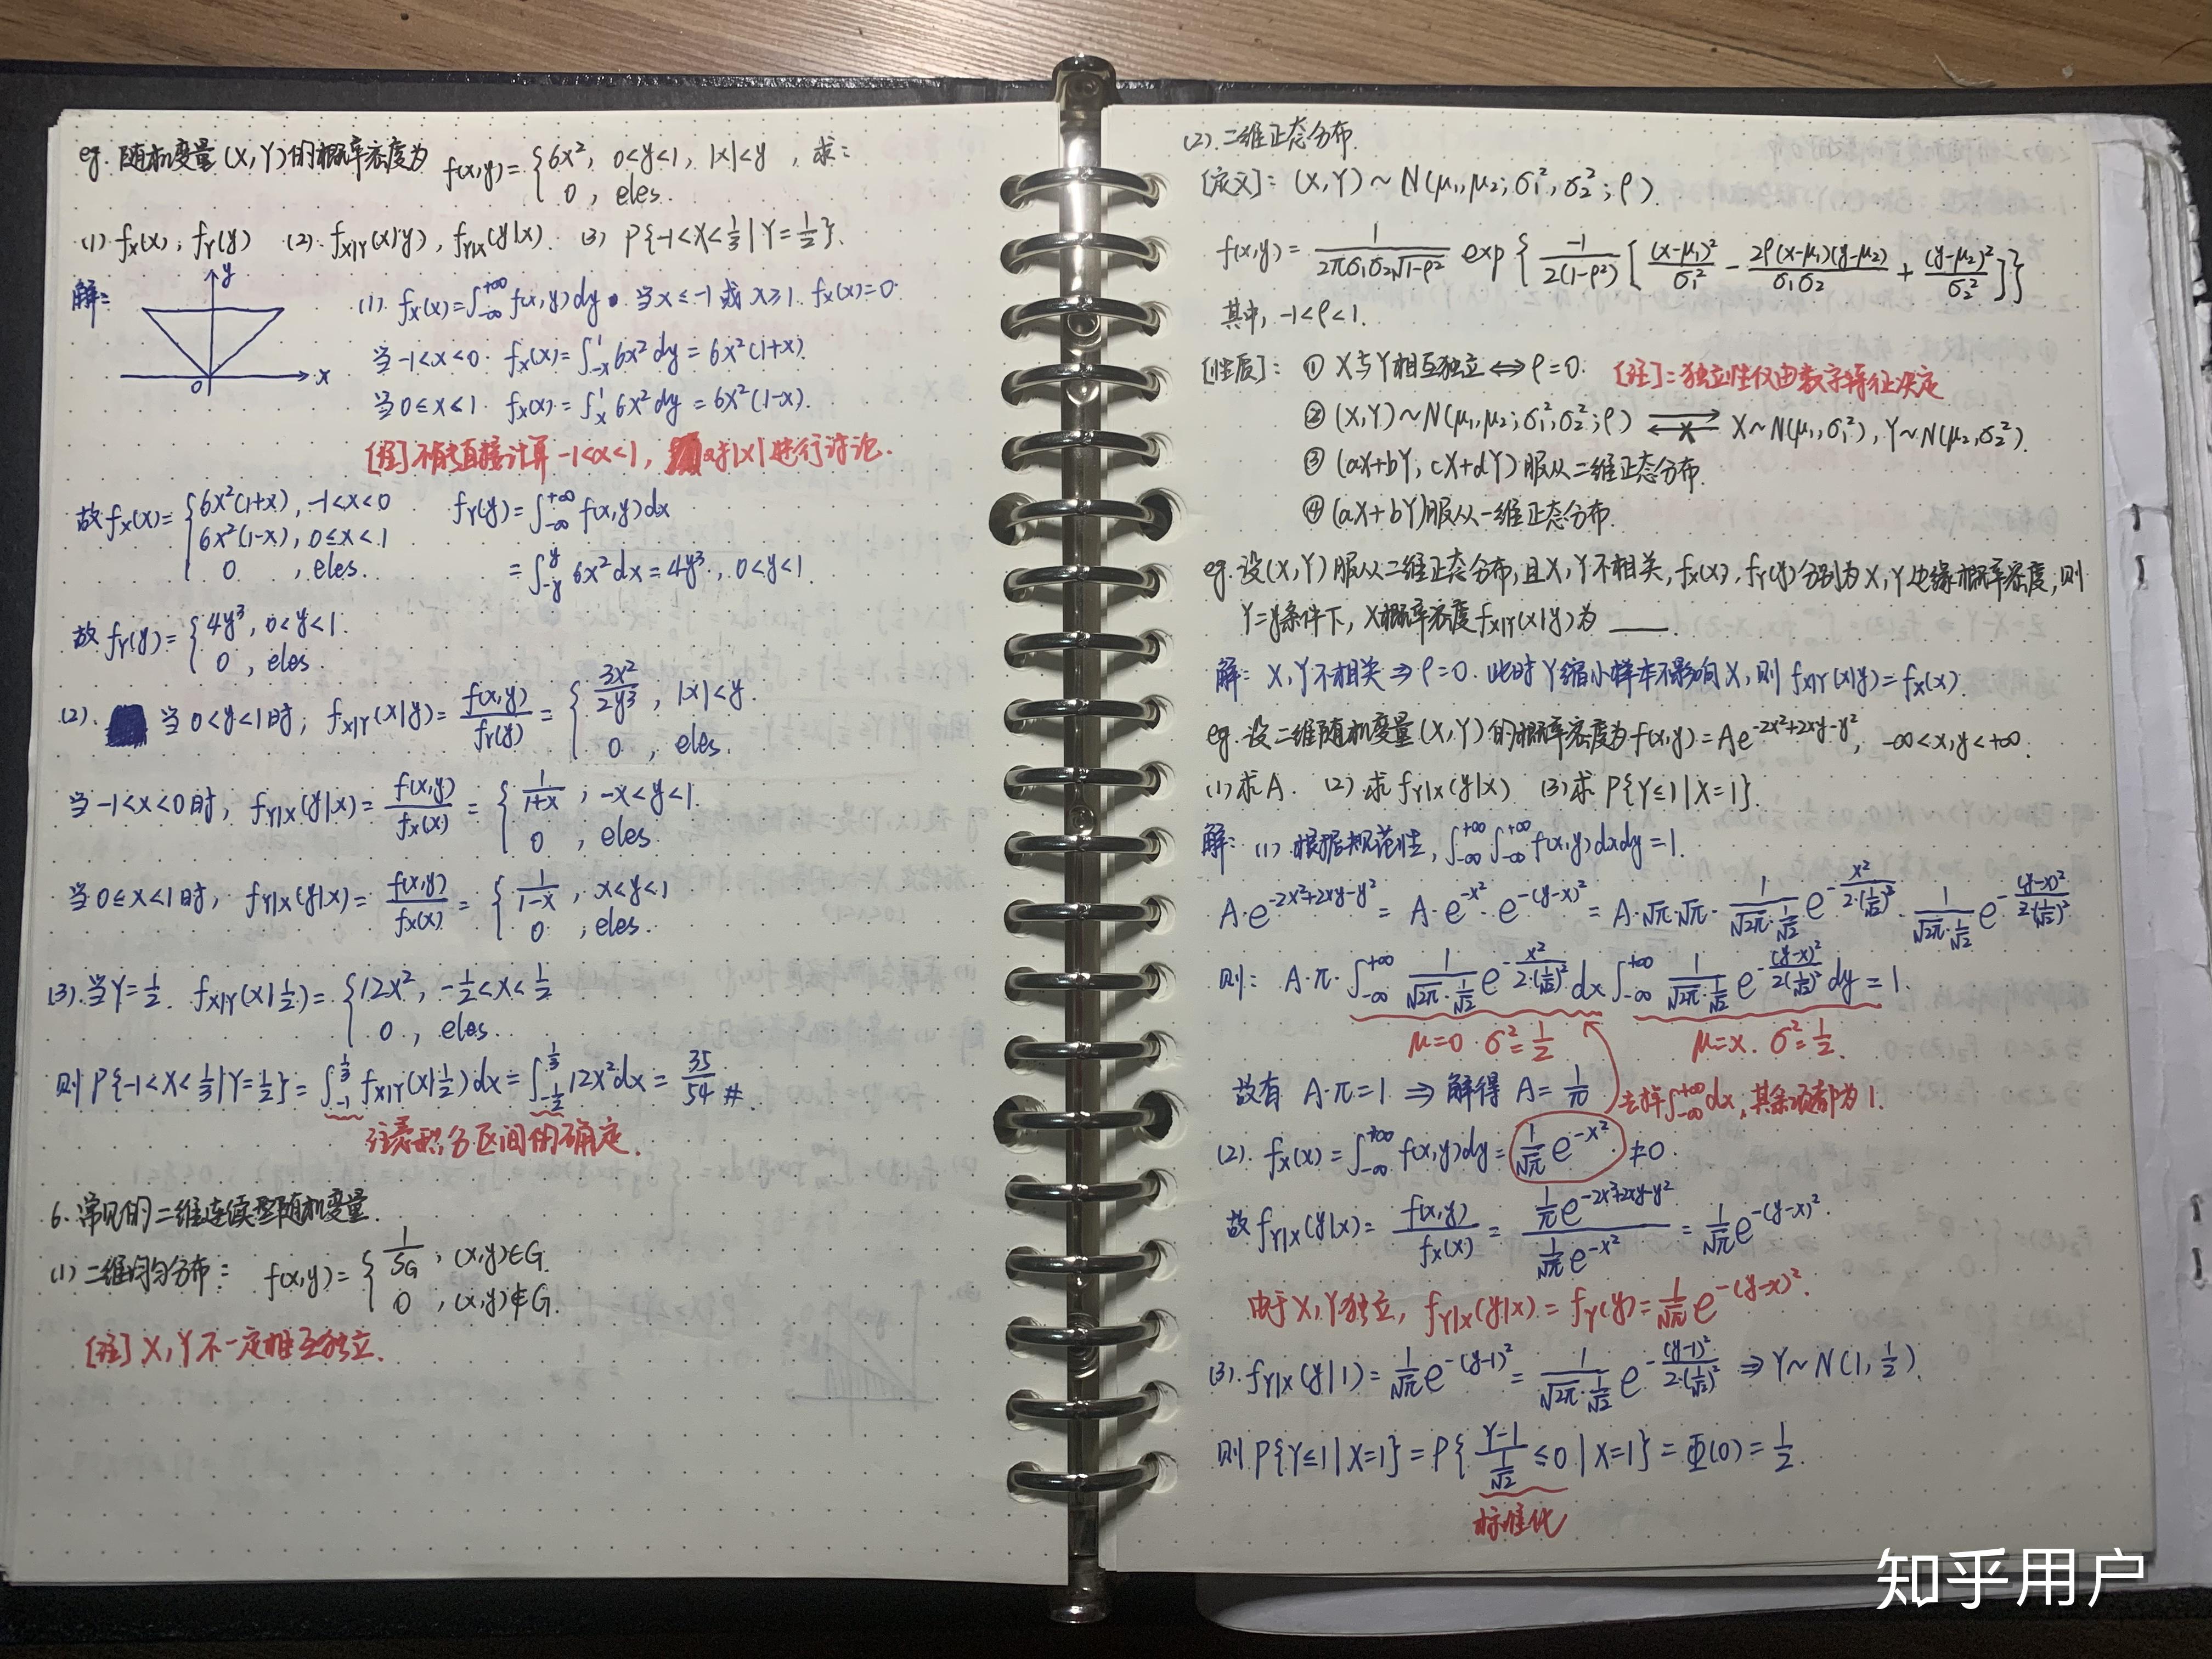 eg. 随机变量(X,Y)的概率密度为 f(x,y)={6x², 0<y<1, |x|<y, 求:
0, eles.
(1) fX(x), fY(y) (2). fX|Y(x|y), fY|X(y|x). (3) P{-1<X<1/3|Y=1/2}.
解:
y
x
O
(1). fX(x)=∫_{-∞}^{+∞} f(x,y)dy. 当x≤-1或x≥1, fX(x)=0.
当-1<x<0. fX(x)=∫_{-x}^{1} 6x²dy=6x²(1+x).
当0≤x≤1. fX(x)=∫_{x}^{1} 6x²dy=6x²(1-x).
[注]不能直接计算-1<x<1, 对|x|进行讨论.
故fX(x)={6x²(1+x), -1<x<0
6x²(1-x), 0≤x<1
0, eles.
fY(y)=∫_{-∞}^{+∞} f(x,y)dx
=∫_{-y}^{y} 6x²dx=4y³, 0<y<1.
故fY(y)={4y³, 0<y<1.
0, eles.
(2). 当0<y<1时, fX|Y(x|y)=f(x,y)/fY(y)={3x²/2y³, |x|<y.
0, eles.
当-1<x<0时, fY|X(y|x)=f(x,y)/fX(x)={1/(1+x), -x<y<1.
0, eles.
当0≤x<1时, fY|X(y|x)=f(x,y)/fX(x)={1/(1-x), x<y<1
0, eles.
(3). 当Y=1/2. fX|Y(x|1/2)={12x², -1/2<x<1/2
0, eles.
则P{-1<X<1/3|Y=1/2}=∫_{-1}^{1/3} fX|Y(x|1/2)dx=∫_{-1/2}^{1/3} 12x²dx=35/54 #.
注意积分区间的确定.
6. 常见的二维连续型随机变量.
(1) 二维均匀分布: f(x,y)={1/S_G, (x,y)∈G.
0, (x,y)∉G.
[注]X,Y不一定相互独立.
(2). 二维正态分布.
[定义]: (X,Y)~N(μ₁,μ₂;σ₁²,σ₂²;ρ).
f(x,y)=1/(2πσ₁σ₂√(1-ρ²)) exp{-1/(2(1-ρ²))[(x-μ₁)²/σ₁² - 2ρ(x-μ₁)(y-μ₂)/(σ₁σ₂) + (y-μ₂)²/σ₂²]}
其中, -1<ρ<1.
[性质]: ① X与Y相互独立⇔ρ=0. [注]: 独立性仅由数字特征决定
② (X,Y)~N(μ₁,μ₂;σ₁²,σ₂²;ρ) ⇄ X~N(μ₁,σ₁²), Y~N(μ₂,σ₂²).
×
③ (aX+bY, cX+dY)服从二维正态分布.
④ (aX+bY)服从一维正态分布.
eg. 设(X,Y)服从二维正态分布,且X,Y不相关, fX(x), fY(y)分别为X,Y边缘概率密度,则
Y=y条件下, X概率密度fX|Y(x|y)为____.
解: X,Y不相关⇒ρ=0. 此时Y缩小样本不影响X, 则fX|Y(x|y)=fX(x).
eg. 设二维随机变量(X,Y)的概率密度为f(x,y)=Ae^{-2x²+2xy-y²}, -∞<x,y<+∞.
(1)求A. (2)求fY|X(y|x) (3)求P{Y≤1|X=1}.
解: (1) 根据规范性, ∫_{-∞}^{+∞}∫_{-∞}^{+∞} f(x,y)dxdy=1.
A·e^{-2x²+2xy-y²}=A·e^{-x²}·e^{-(y-x)²}=A·√π·√π·1/(√2π·1/√2) e^{-x²/(2·(1/√2)²)}·1/(√2π·1/√2) e^{-(y-x)²/(2·(1/√2)²)}
则: A·π·∫_{-∞}^{+∞} 1/(√2π·1/√2) e^{-x²/(2·(1/√2)²)}dx∫_{-∞}^{+∞} 1/(√2π·1/√2) e^{-(y-x)²/(2(1/√2)²)}dy=1.
μ=0. σ²=1/2 μ=x. σ²=1/2.
故有 A·π=1 ⇒ 解得 A=1/π 去掉∫_{-∞}^{+∞}dx, 其余项都为1.
(2). fX(x)=∫_{-∞}^{+∞} f(x,y)dy=1/√π e^{-x²}≠0.
故fY|X(y|x)=f(x,y)/fX(x)=(1/π e^{-2x²+2xy-y²})/(1/√π e^{-x²})=1/√π e^{-(y-x)²}.
由于X,Y独立, fY|X(y|x)=fY(y)=1/√π e^{-(y-x)²}.
(3). fY|X(y|1)=1/√π e^{-(y-1)²}=1/(√2π·1/√2) e^{-(y-1)²/(2·(1/√2)²)} ⇒ Y~N(1,1/2).
则P{Y≤1|X=1}=P{(Y-1)/(1/√2)≤0|X=1}=Φ(0)=1/2.
标准化
知乎用户